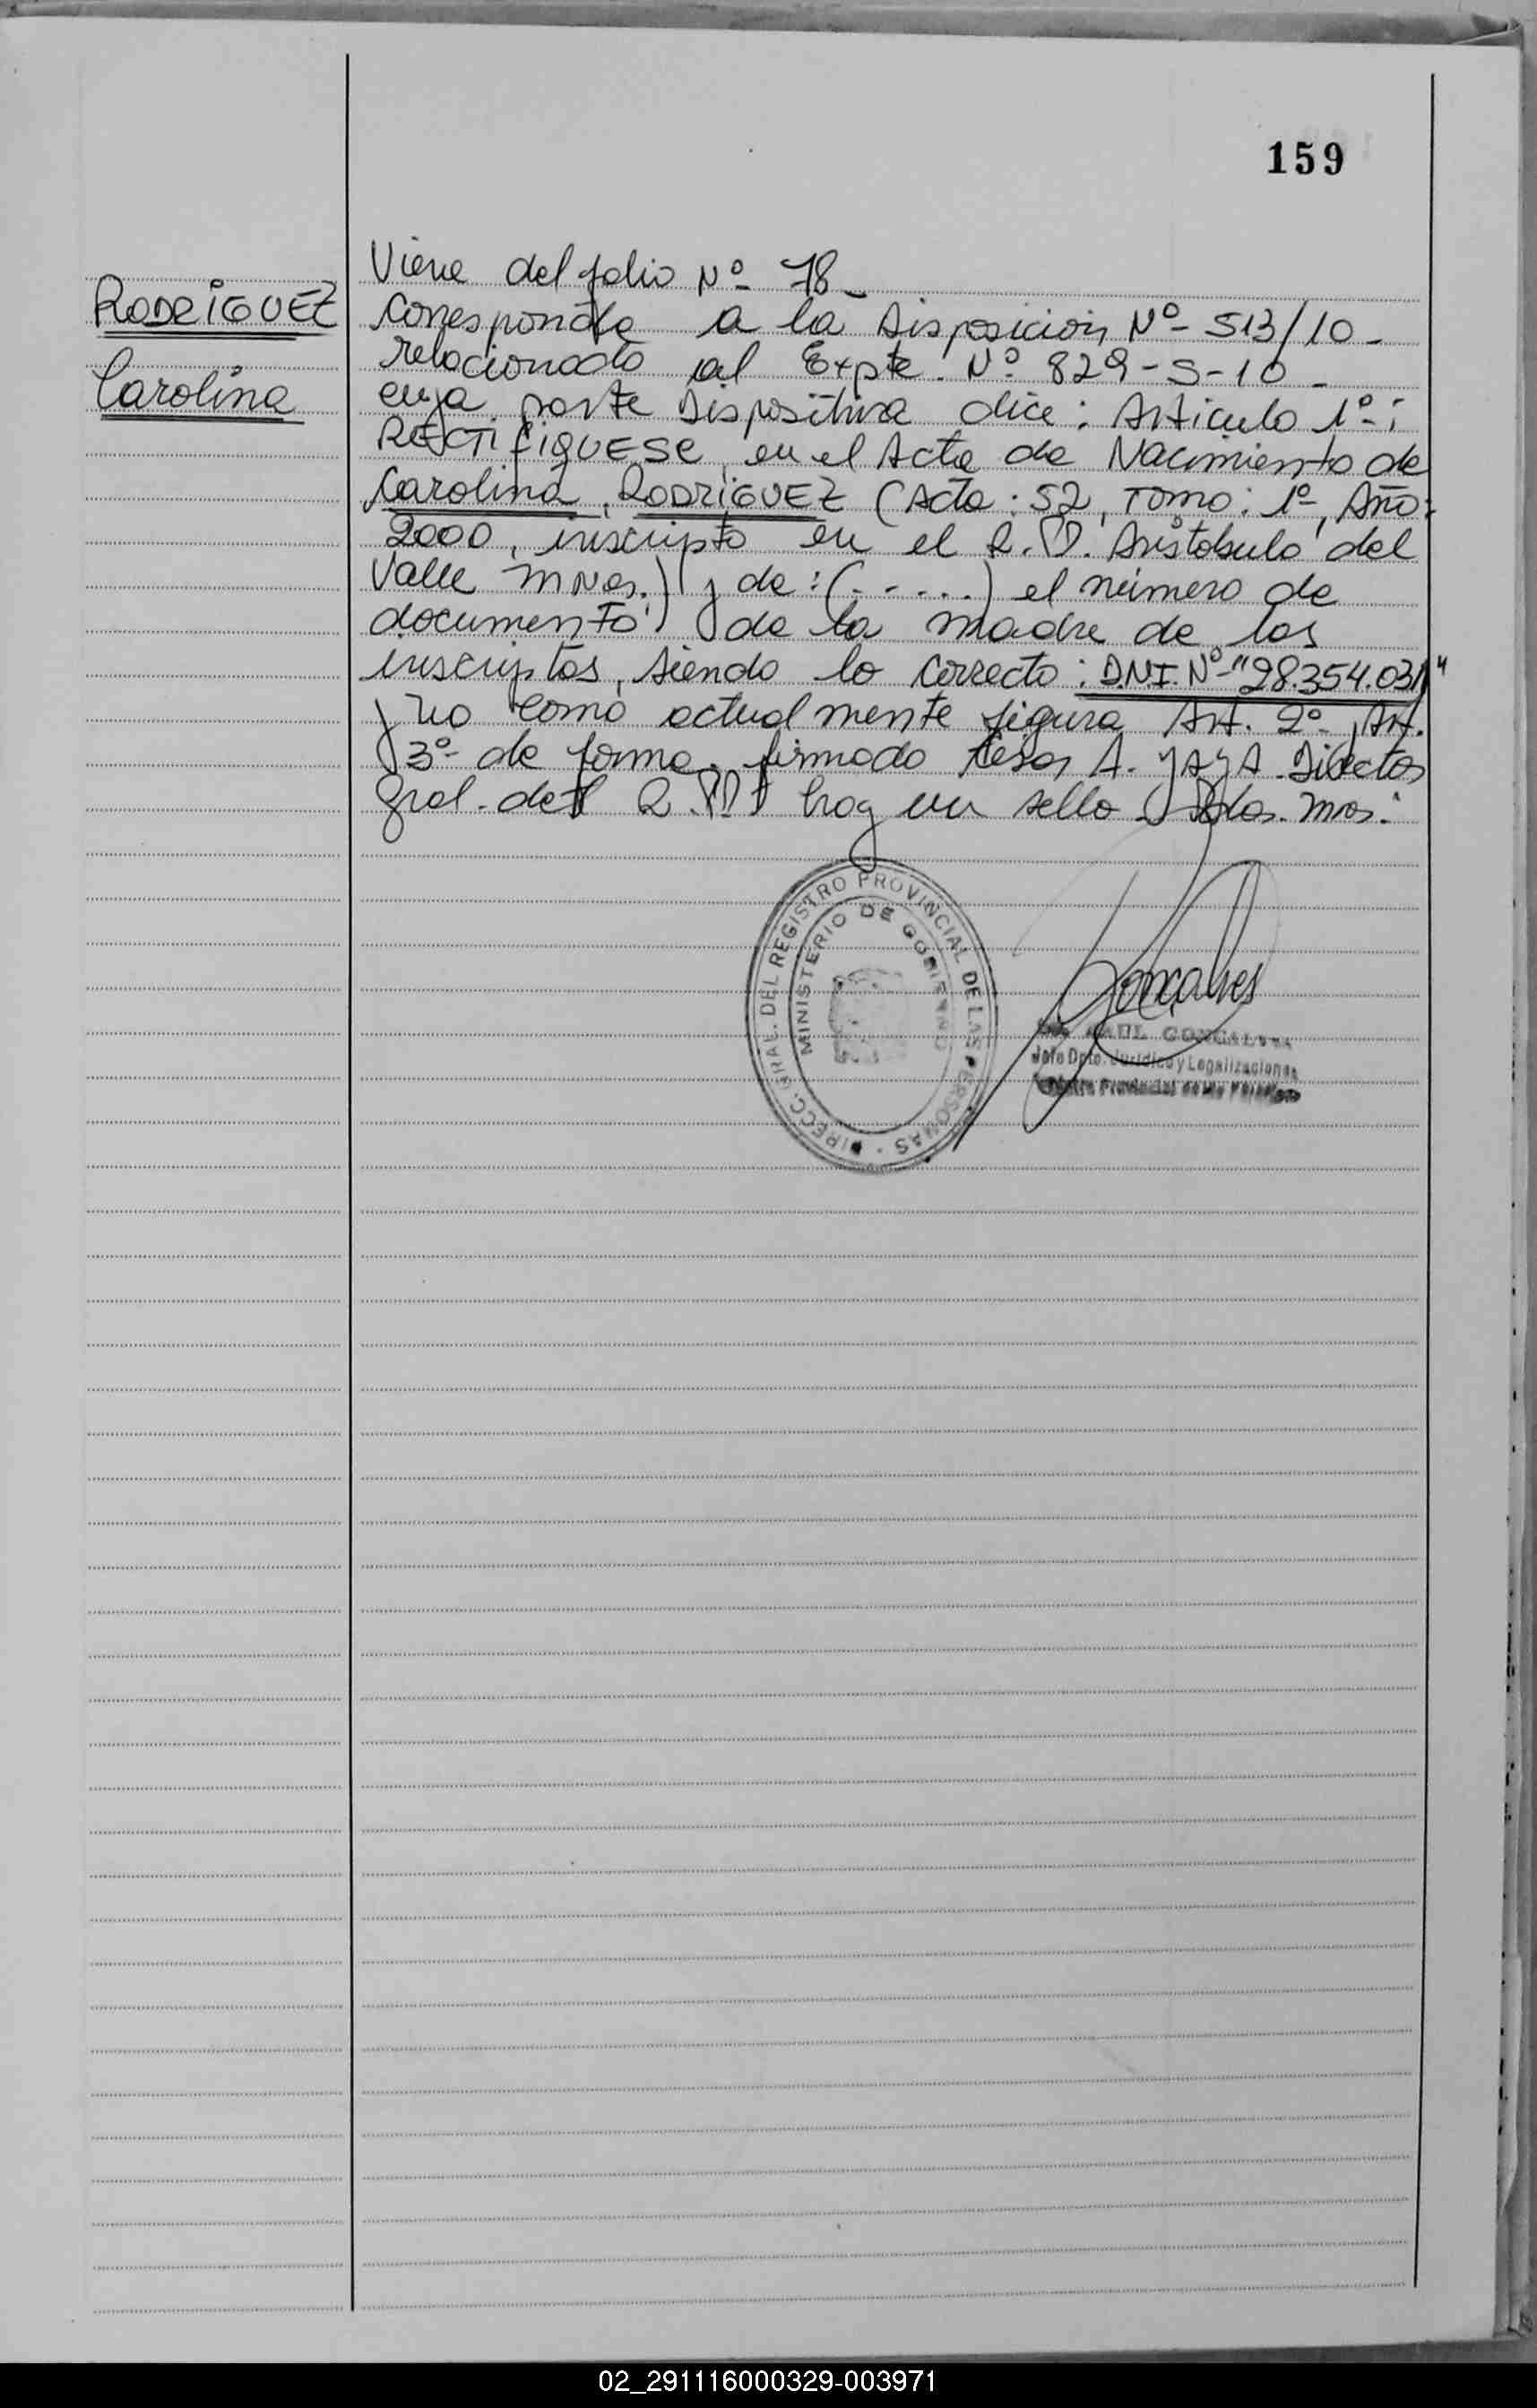 159
RODRIGUEZ
Carolina
Viene del folio Nº 78_
Corresponde a la Disposición Nº 513/10_
relacionado al Expte. Nº 829-S-10_
cuya parte Dispositiva dice: Articulo 1º:
RECTIFIQUESE, en el Acta de Nacimiento de
Carolina, RODRIGUEZ (Acta: 52, Tomo: 1º, Año:
2000, inscripto en el R.P. Aristobulo del
Valle Mnes.) y de: (.....) el número de
documento de la madre de los
inscriptos, siendo lo correcto: D.N.I. Nº "28.354.031"
y no como actualmente figura Art. 2º, Art.
3º de forma. firmado A. YAYA Director
Gral. del R.P.P hay un sello Pdas. Mnes.
DIRECC. GRAL. DEL REGISTRO PROVINCIAL DE LAS PERSONAS
MINISTERIO DE GOBIERNO
Goncalves
RAUL GONCALVES
Jefe Dpto. Jurídico y Legalizaciones
Registro Provincial de las Personas
02_291116000329-003971